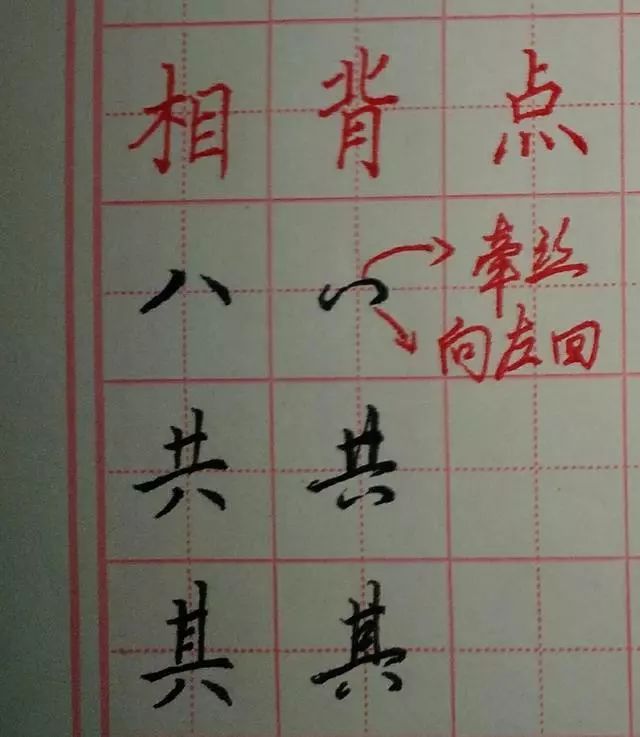 相背点
八 牵丝
向左回
共 共
其 其